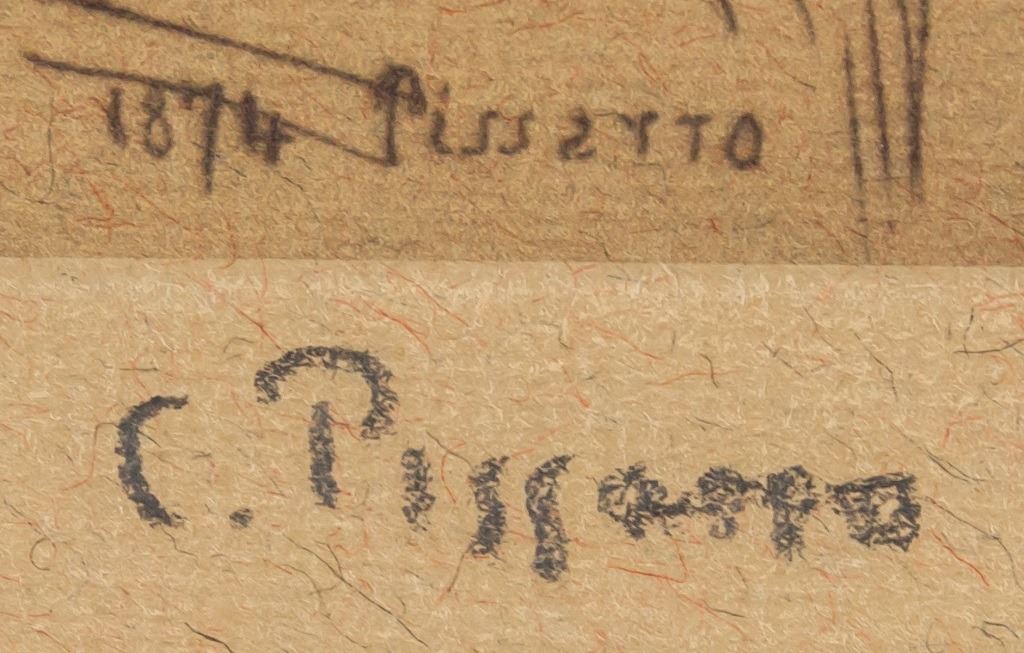 1874 Pissarro
C. Pissarro